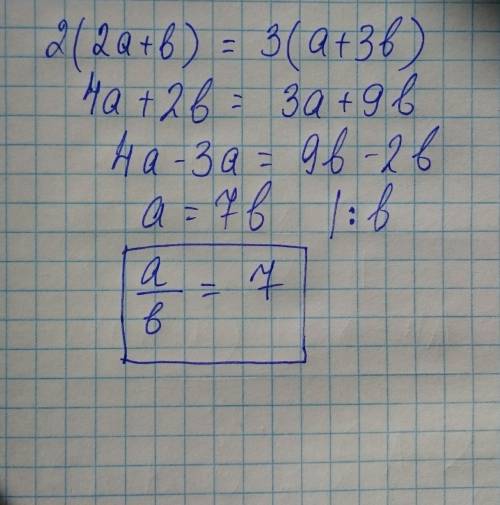 2(2a+b) = 3(a+3b)
4a+2b = 3a+9b
4a-3a = 9b-2b
a = 7b |:b
a/b = 7